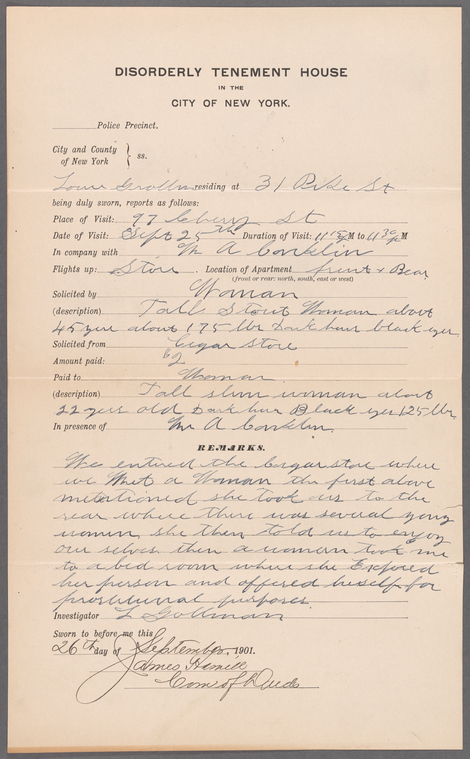 DISORDERLY TENEMENT HOUSE
IN THE
CITY OF NEW YORK.
Police Precinct,
City and County
of New York } ss.
Louis residing at 31 Pike St
being duly sworn, reports as follows:
Place of Visit: 97 Cherry St
Date of Visit: Sept 25th Duration of Visit: 11 15 P M to 11 30 P M
In company with Mr A Conklin
Flights up: Store . Location of Apartment front & Rear
(front or rear: north, south, east or west)
Solicited by Woman
(description) Tall Stout Woman about
45 yrs about 175 lbs Dark hair black eyes
Solicited from Cigar Store
Amount paid:
Paid to Woman
(description) Tall slim woman about
22 yrs old Dark hair Black eyes 125 lbs.
In presence of Mr A Conklin.
REMARKS.
We entered the Cigar store where
we Met a Woman the first above
metertioned she took us to the
rear where there was several young
women, she then told us to enjoy
our selves then a woman took me
to a bed room where she Exposed
her person and offered herself for
prostitutional purposes.
Investigator L Gollman
Sworn to before me this
26th day of September, 1901.
James Hamill
Com of Deeds